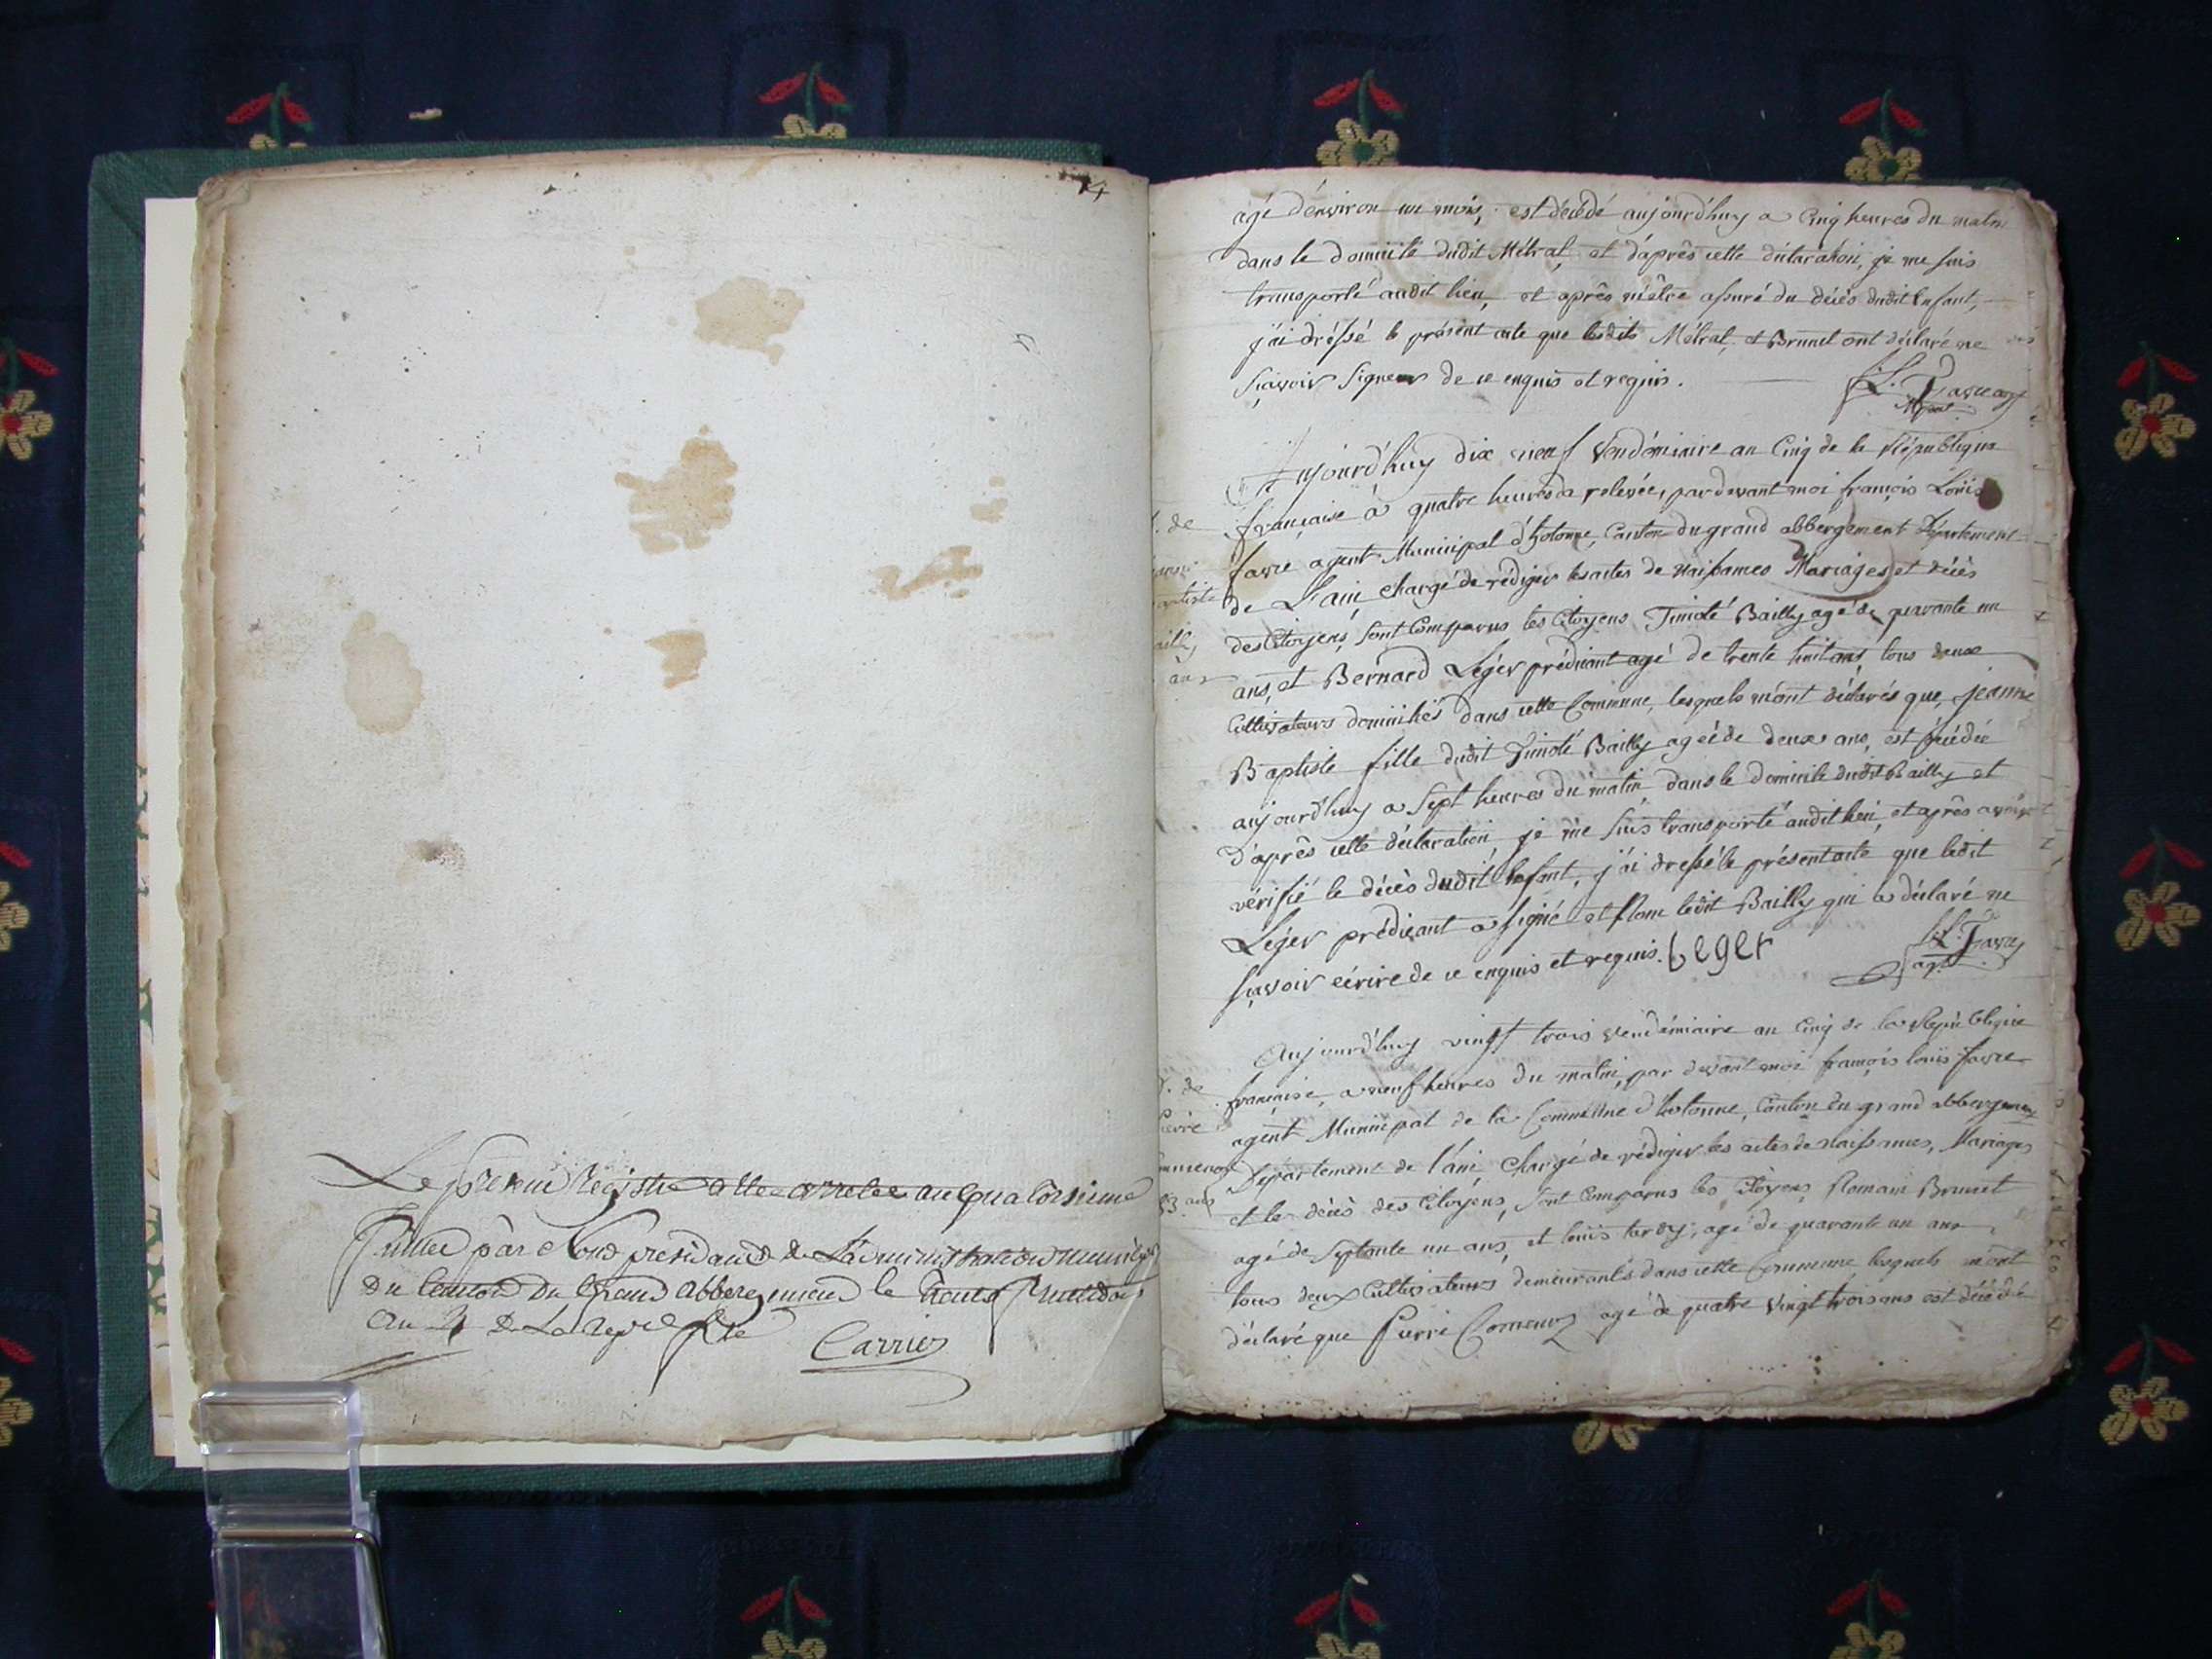 14
Le present Registre a ete arreté au quatorsieme
par Nous president de L'administration municipale
du Canton du Grand abbergement le trente fructidor
an 4 de La repe fse
Carrier
agé d'environ un mois, est décédé aujourd'huy a Cinq heures du matin
dans le domicile dudit Métral, et d'après cette déclaration, je me suis
transporté audit lieu, et après m'être assuré du décès dudit Enfant,
j'ai dréssé le présent acte que lesdits Métral, et Brunet ont déclaré ne
sçavoir signer de ce enquis et requis.
f.L. Favre
agent
Aujourd'huy dix neuf Vendémiaire an Cinq de la République
française à quatre heures de relevée, par devant moi françois Loüis
favre agent Municipal d'hotonne, Canton du grand abbergement Département
de L'ain, chargé de rédiger les actes de Naissances Mariages et décès
des Citoyens, sont Comparus les Citoyens Timoté Bailly agé de quarante un
ans, et Bérnard Léger prédicant agé de trente huit ans, tous deux
Cultivateurs domiciliés dans cette Commune, lesquels m'ont déclarés que, jeanne
Baptiste fille dudit Timoté Bailly agée de deux ans, est décédée
aujourd'huy a sept heures du matin, dans le domicile dudit Bailly et
d'après cette déclaration, je me suis transporté audit lieu, et après avoir
vérifié le décès dudit Enfant, j'ai dressé le présent acte que ledit
Léger prédicant a signé et Non ledit Bailly qui a déclaré ne
sçavoir écrire de ce enquis et requis. Leger
f.L. Favre
agt
D. de
jeanne
Baptiste
Bailly
2 ans
Aujourd'huy vingt trois vendémiaire an Cinq de la République
française, a neuf heures du matin, par devant moi françois loüis favre
agent Municipal de la Commune d'hotonne, Canton du grand abbergement
Département de l'ain, chargé de rédiger les actes de Naissances, Mariages
et les décès des Citoyens, sont Comparus les Citoyens Romain Brunet
agé de septante un ans, et loüis tardy, agé de quarante un ans
tous deux Cultivateurs demeurants dans cette Commune, lesquels m'ont
déclaré que Pierre agé de quatre Vingt trois ans est décédé
D. de
Pierre
83 ans